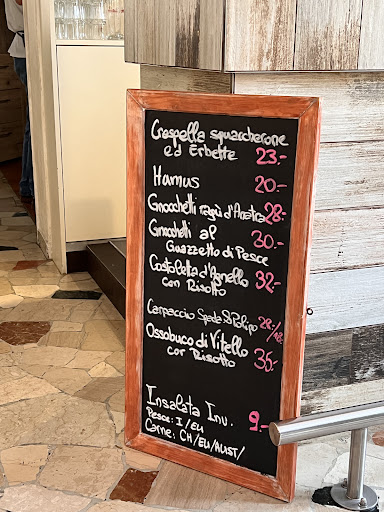 Crespella squaccherone
ed Erbette 23.-
Humus 20.-
Gnocchetti ragù d'Anatra 28.-
Gnocchetti al
Guazzetto di Pesce 30.-
Costoletta d'Agnello
con Risotto 32.-
Carpaccio Spada & Polipo 28.-
Ossobuco di Vitello
con Risotto 35.-
Insalata Inv. 9.-
Pesce: I/EU
Carne: CH/EU/AUST/